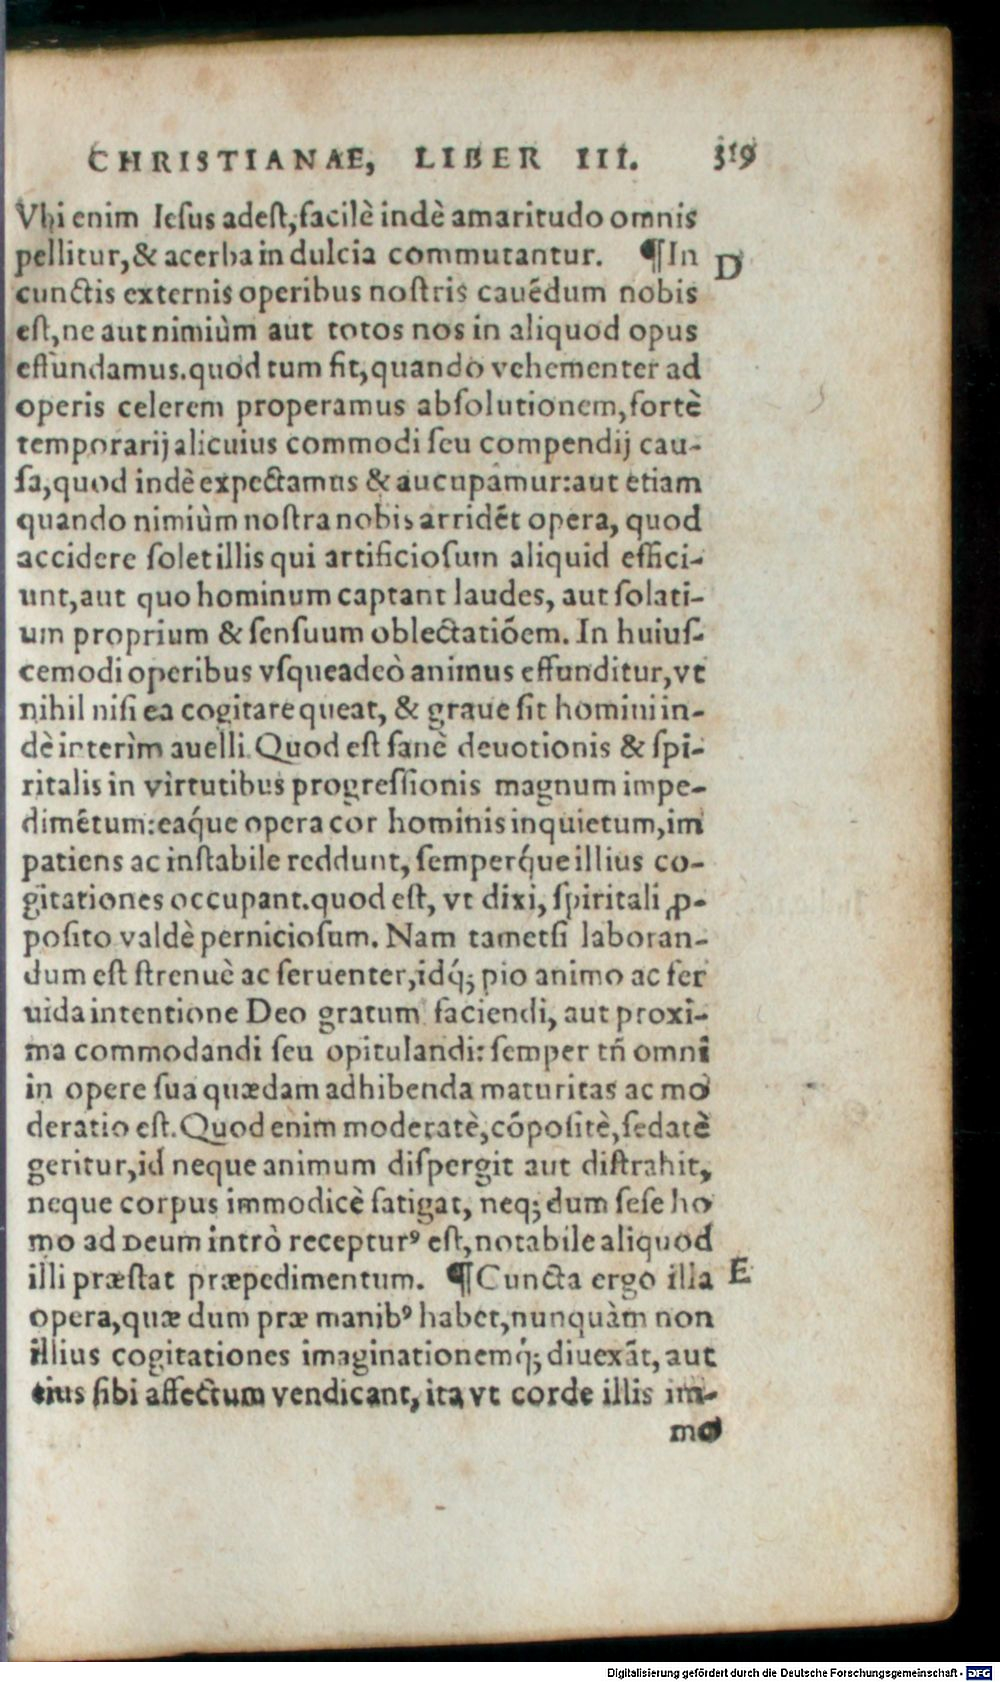 CHRISTIANAE, LIBER III. 319
Vbi enim Iesus adest, facilè indè amaritudo omnis
pellitur, & acerba in dulcia commutantur. ¶In D
cunctis externis operibus nostris cauēdum nobis
est, ne aut nimiùm aut totos nos in aliquod opus
effundamus. quod tum fit, quando vehementer ad
operis celerem properamus absolutionem, fortè
temporarij alicuius commodi seu compendij cau-
sa, quod indè expectamus & aucupamur: aut etiam
quando nimiùm nostra nobis arridēt opera, quod
accidere solet illis qui artificiosum aliquid effici-
unt, aut quo hominum captant laudes, aut solati-
um proprium & sensuum oblectatiōem. In huius-
cemodi operibus vsqueadeò animus effunditur, vt
nihil nisi ea cogitare queat, & graue sit homini in-
dè interìm auelli. Quod est sanè deuotionis & spi-
ritalis in virtutibus progressionis magnum impe-
dimētum: eaq́ue opera cor hominis inquietum, im
patiens ac instabile reddunt, semperq́ue illius co-
gitationes occupant. quod est, vt dixi, spiritali ꝓ-
posito valdè perniciosum. Nam tametsi laboran-
dum est strenuè ac feruenter, idq́; pio animo ac fer
uida intentione Deo gratum faciendi, aut proxi-
ma commodandi seu opitulandi: semper tñ omni
in opere sua quædam adhibenda maturitas ac mo
deratio est. Quod enim moderatè, cōpositè, sedatè
geritur, id neque animum dispergit aut distrahit,
neque corpus immodicè fatigat, neq; dum sese ho
mo ad DEUM intrò recepturꝰ est, notabile aliquod
illi præstat præpedimentum. ¶Cuncta ergo illa E
opera, quæ dum præ manibꝰ habet, nunquàm non
illius cogitationes imaginationemq́; diuexāt, aut
eius sibi affectum vendicant, ita vt corde illis im-
mo
Digitalisierung gefördert durch die Deutsche Forschungsgemeinschaft - DFG